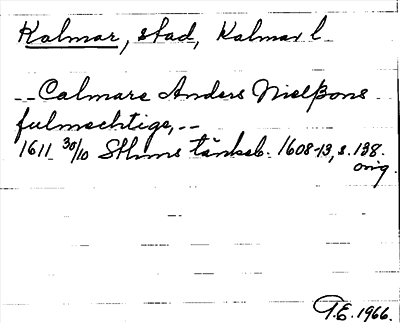 Kalmar, stad, Kalmar l
-- Calmare Anders Nielßons
fulmechtige, --
1611 30/10 Sthms tänkeb. 1608-13, s. 138.
orig.
T.E. 1966.